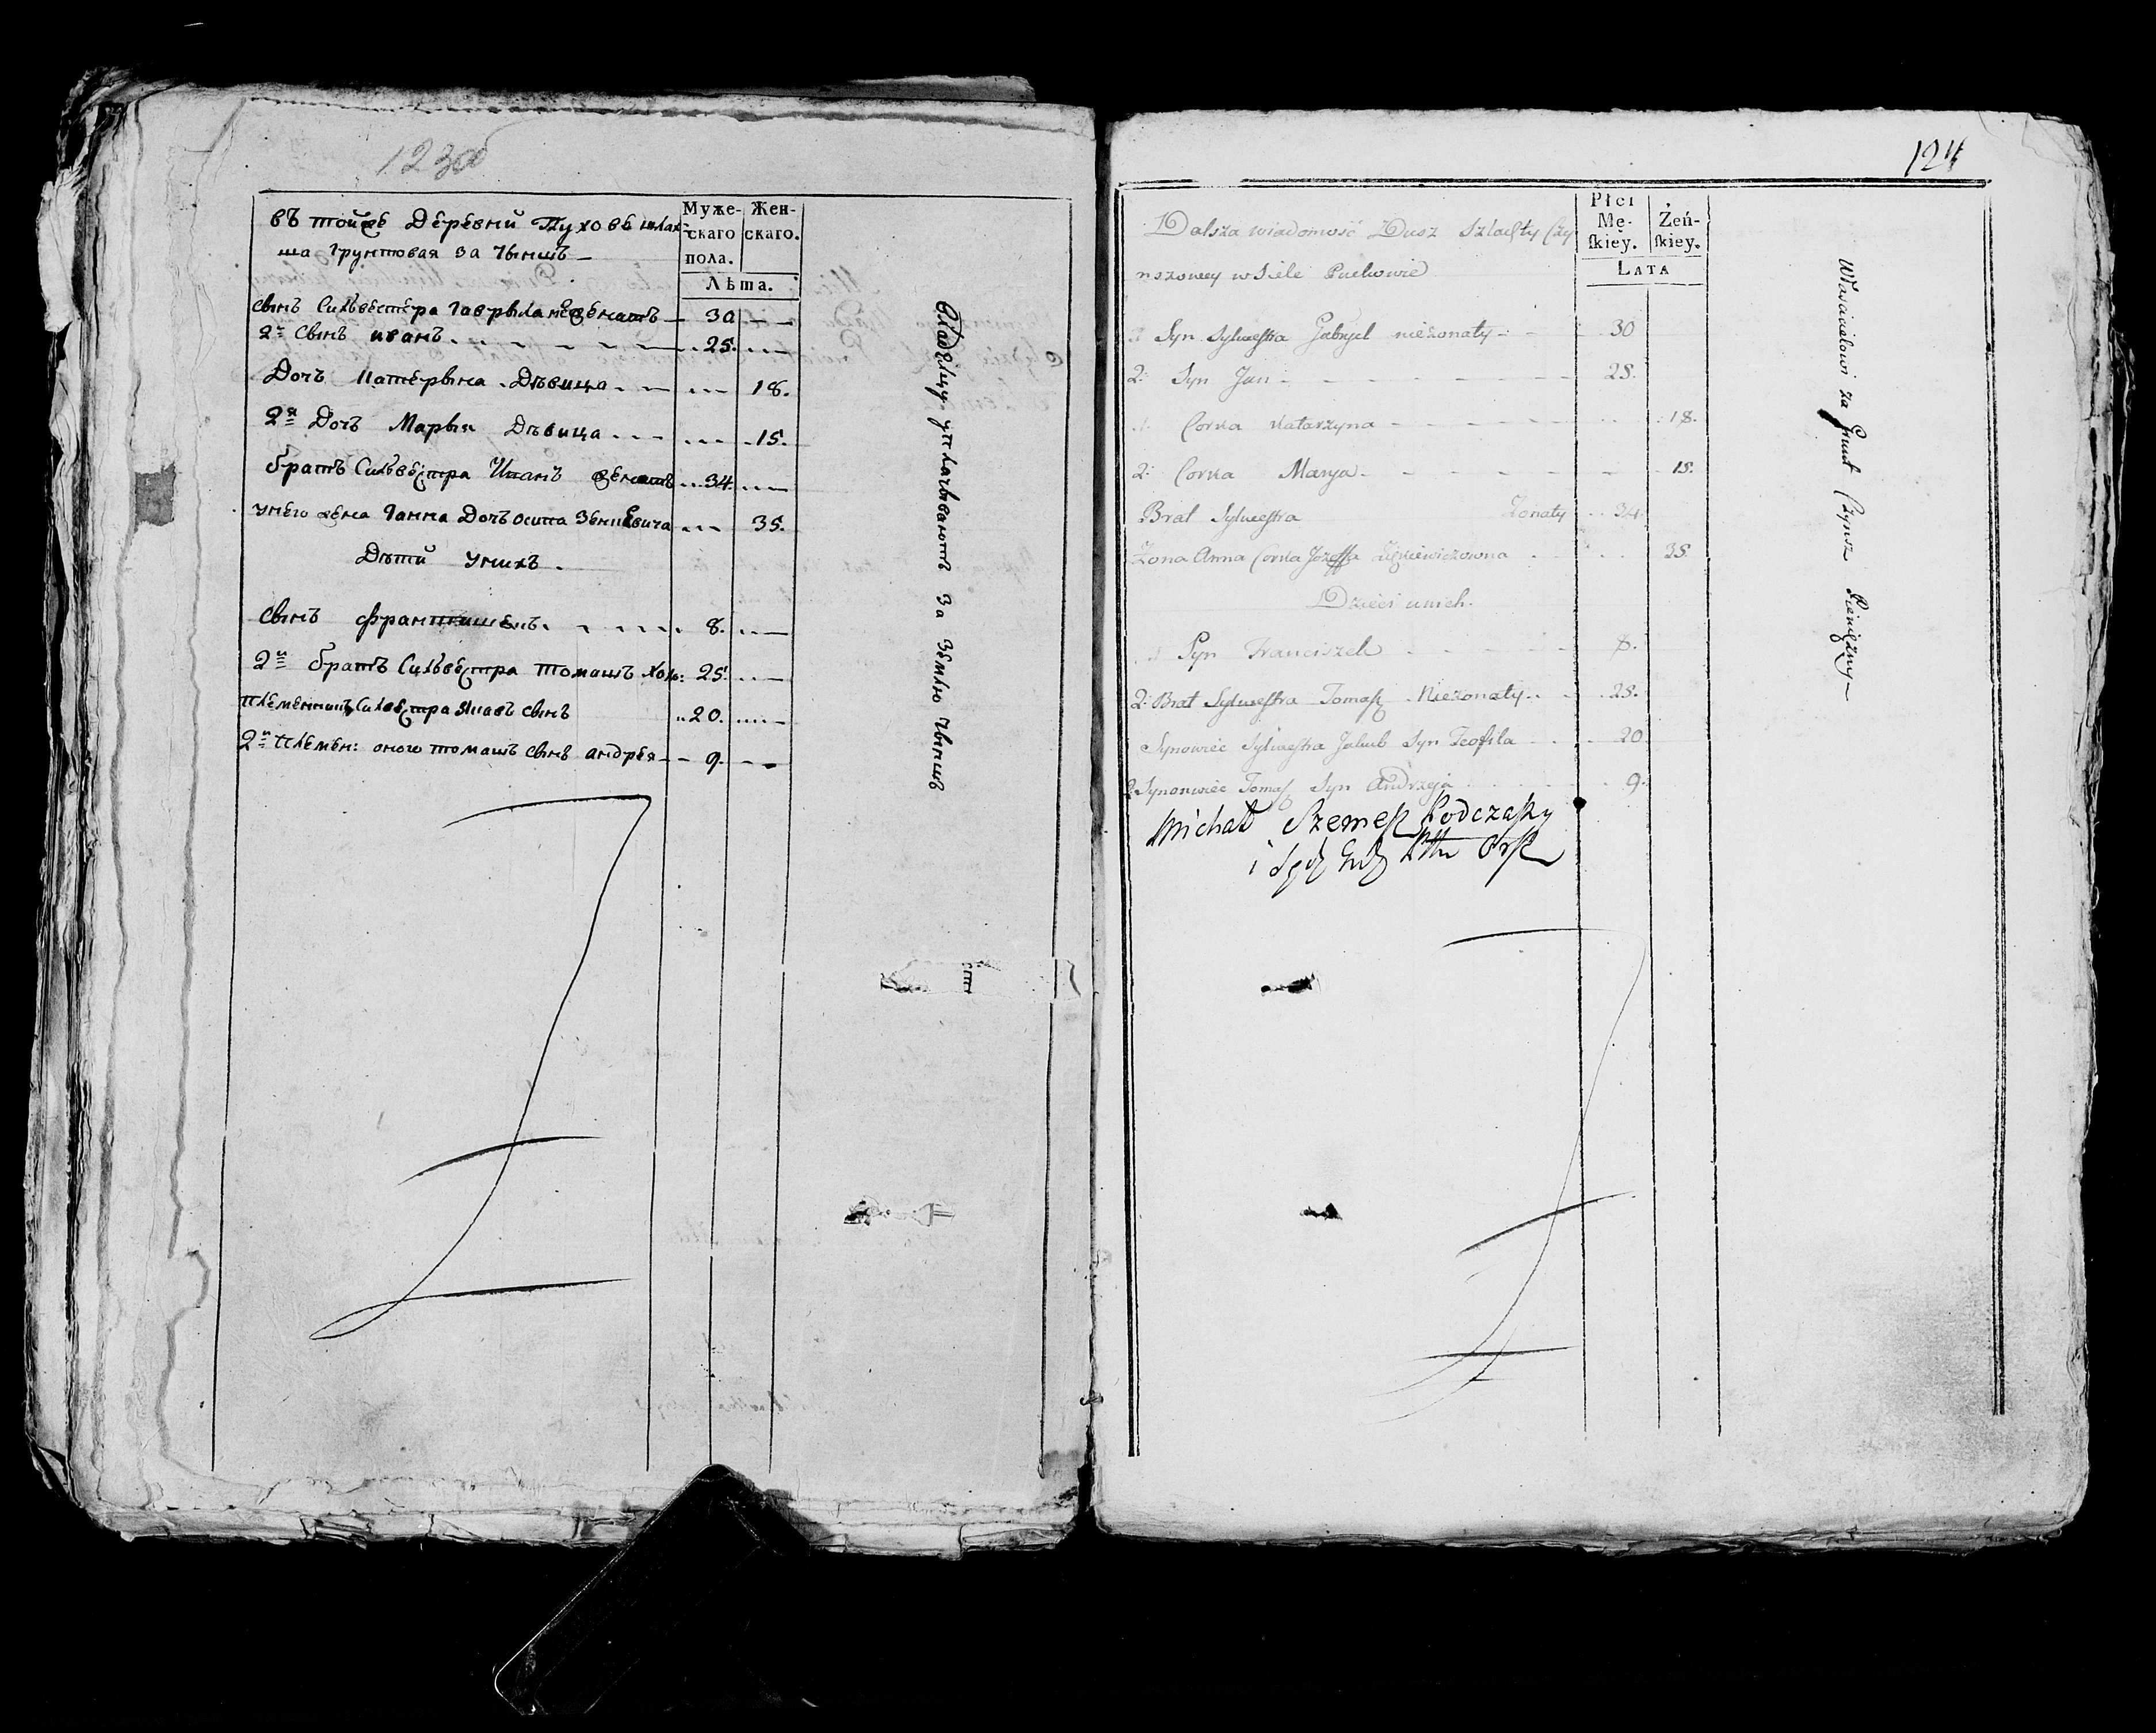 123об
въ тойже Деревни Пухове шлях-
та грунтовая за чыншъ
Муже-
скаго
пола.
Жен-
скаго.
Лѣта.
сынъ Сильвестера Гаврыла неженатъ 30
2й Сынъ иванъ 25.
Дочъ Катерына Дѣвица 18.
2я Дочъ Марыя Дѣвица 15.
братъ Сильвестра Игнатъ женатъ 34.
унего жена Ганна Дочъ осипа 35.
Дѣти унихъ.
сынъ Францишекъ 8.
2й братъ Сильвестра томашъ холо: 25.
племенникъ Силвестра Яковъ сынъ 20.
2й племен: оного томашъ сынъ андрея 9.
Владелцу уплачываютъ за Землю чыншъ
124
Dalsza wiadomość Dusz Szlachty Czy
nszowey w Siele Puchowie
Płci
Mę-
skiey.
Żeń-
skiey.
LATA
Syn Sylwestra Gabryel nieżonaty 30
2: Syn Jan 25.
Corka Katarzyna 18.
2: Corka Marya 15.
Brat Sylwestra Żonaty 34.
Żona Anna Corka Jozeffa 35
Dzieci unich.
Syn Franciszek 8.
2: Brat Sylwestra Tomasz Nieżonaty 25.
Synowiec Sylwestra Jakub Syn Teofila 20
2 Synowiec Tomasz Syn Andrzeja 9.
Michał Szemesz Podczaszy
Właścicielowi za Grunt Czynsz Pieniężny